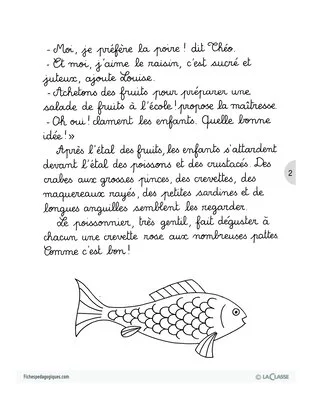 - Moi, je préfère la poire ! dit Théo.
- Et moi, j'aime le raisin, c'est sucré et
juteux, ajoute Louise.
- Achetons des fruits pour préparer une
salade de fruits à l'école ! propose la maîtresse.
- Oh oui ! clament les enfants. Quelle bonne
idée ! »
Après l'étal des fruits, les enfants s'attardent
devant l'étal des poissons et des crustacés. Des
crabes aux grosses pinces, des crevettes, des
maquereaux rayés, des petites sardines et de
longues anguilles semblent les regarder.
Le poissonnier, très gentil, fait déguster à
chacun une crevette rose aux nombreuses pattes
Comme c'est bon !
2
Fichespedagogiques.com
© LACLASSE